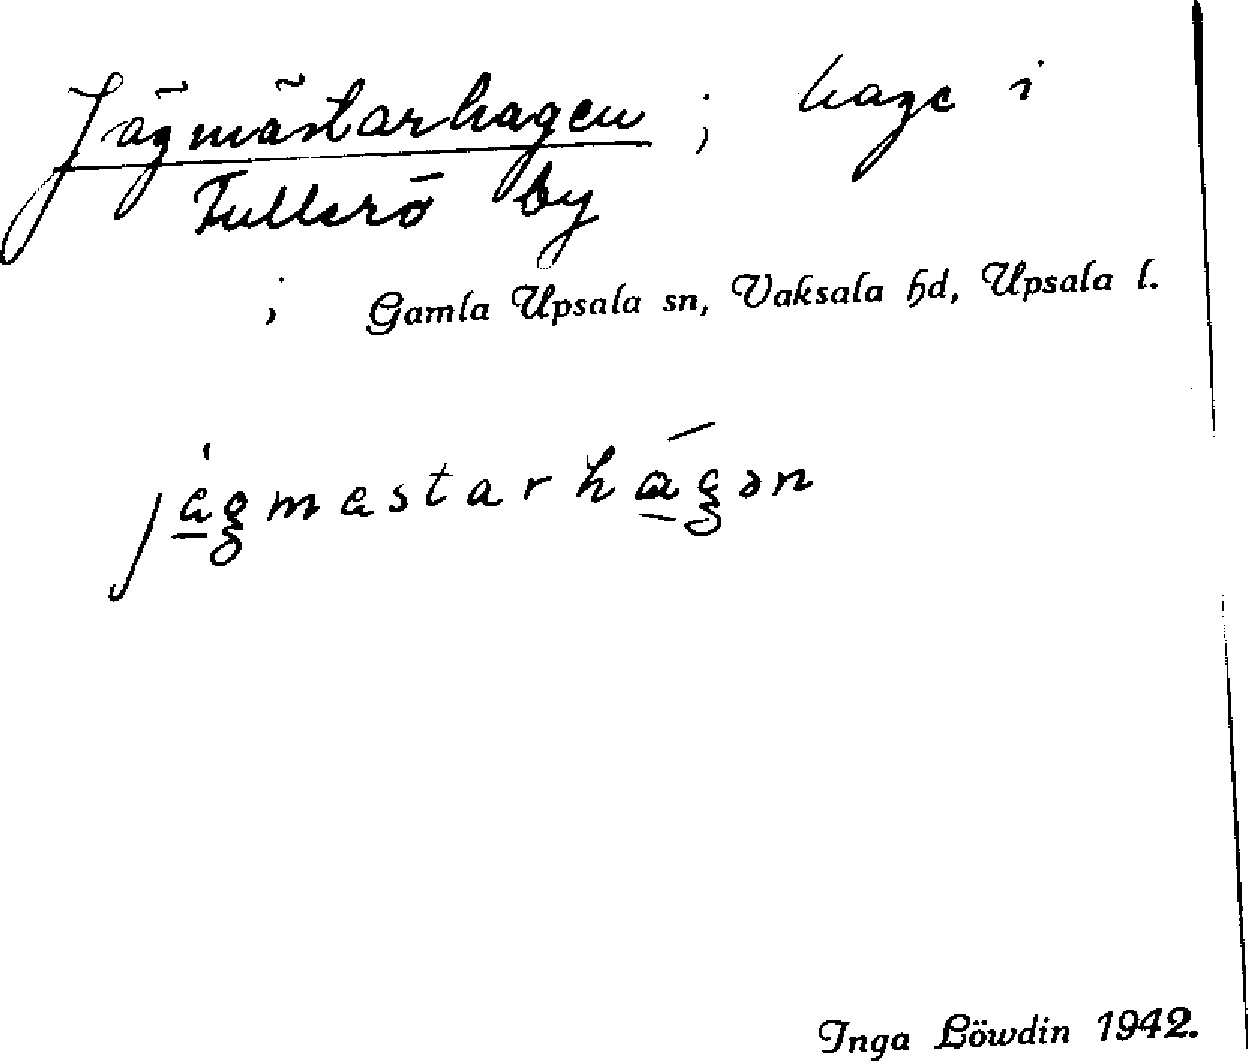 Jägmästarhagen ; hage i
Tullerö by
; Gamla Upsala sn, Vaksala hd, Upsala l.
jägmästarhagən
Inga Löwdin 1942.